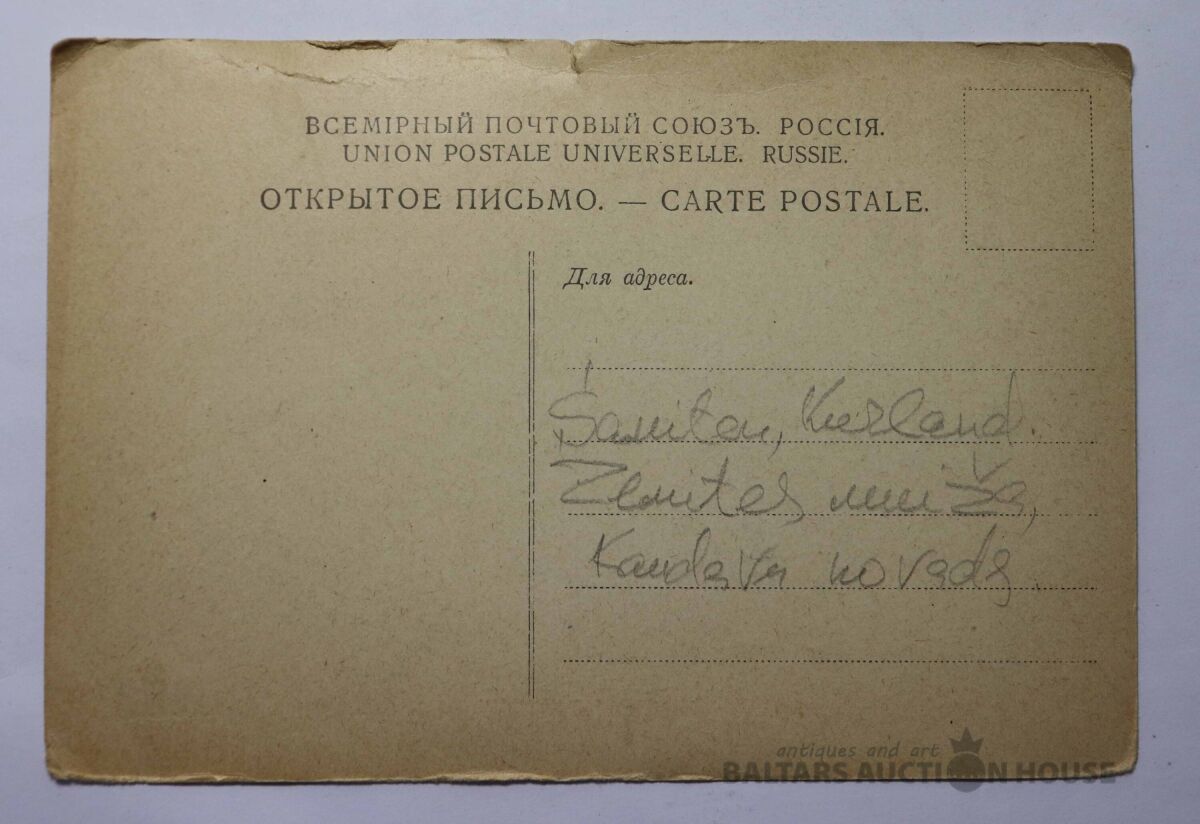 ВСЕМІРНЫЙ ПОЧТОВЫЙ СОЮЗЪ. РОССІЯ.
UNION POSTALE UNIVERSELLE. RUSSIE.
ОТКРЫТОЕ ПИСЬМО. — CARTE POSTALE.
Для адреса.
Samiten, Kurland.
Zemites muiža,
Kandava novads.
antiques and art
BALTARS AUCTION HOUSE